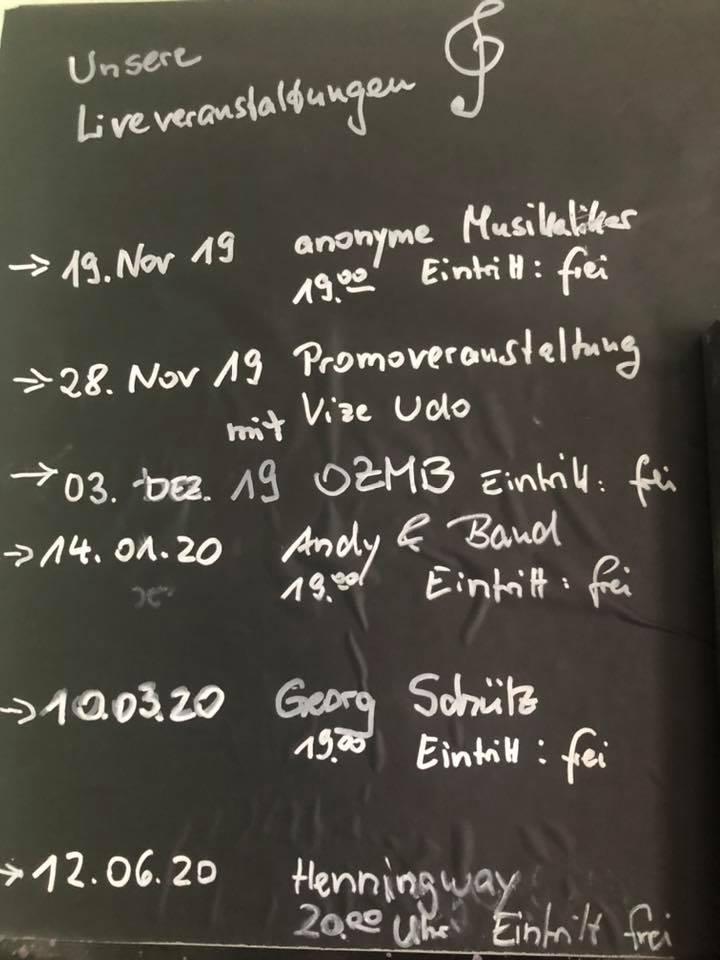 Unsere
Liveveranstaltungen
→ 19. Nov 19 anonyme Musikaliker
19.00 Eintritt: frei
→ 28. Nov 19 Promoveranstaltung
mit Vize Udo
→ 03. DEZ. 19 OZMB Eintritt: frei
→ 14.01.20 Andy & Band
19.00 Eintritt: frei
→ 10.03.20 Georg Schütz
19.00 Eintritt: frei
→ 12.06.20 Henningway
20.00 Uhr Eintritt frei